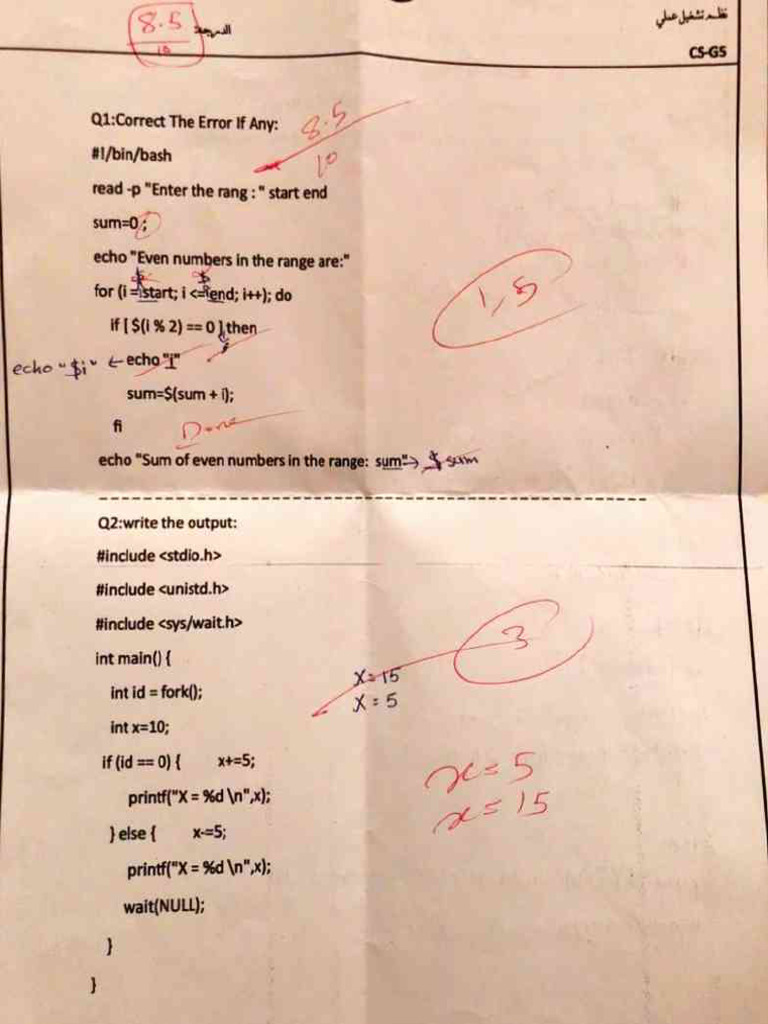 8.5
10
الدرجة
نظم تشغيل عملي
CS-G5
Q1:Correct The Error If Any:
8.5
10
#!/bin/bash
read -p "Enter the rang : " start end
sum=0;
echo "Even numbers in the range are:"
$ $
for (i =start; i <=end; i++); do
1,5
if [ $(i % 2) == 0 ] then
;
echo "$i" ← echo "i"
sum=$(sum + i);
fi
Done
echo "Sum of even numbers in the range: sum" → $sum
Q2:write the output:
#include <stdio.h>
#include <unistd.h>
#include <sys/wait.h>
3
int main() {
X=15
int id = fork();
X=5
int x=10;
if (id == 0) { x+=5;
x=5
printf("X = %d \n",x);
x=15
} else { x-=5;
printf("X = %d \n",x);
wait(NULL);
}
}